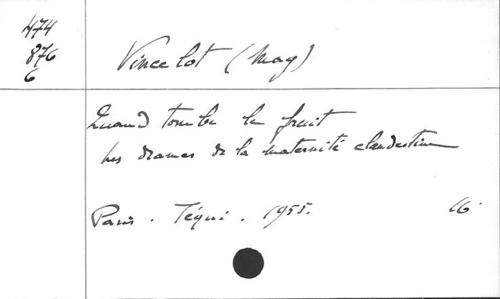 474
876
6
Vincelot (Mag)
Quand tombe le fruit
Les drames de la maternité clandestine
Paris. Téqui. 1955. 16.